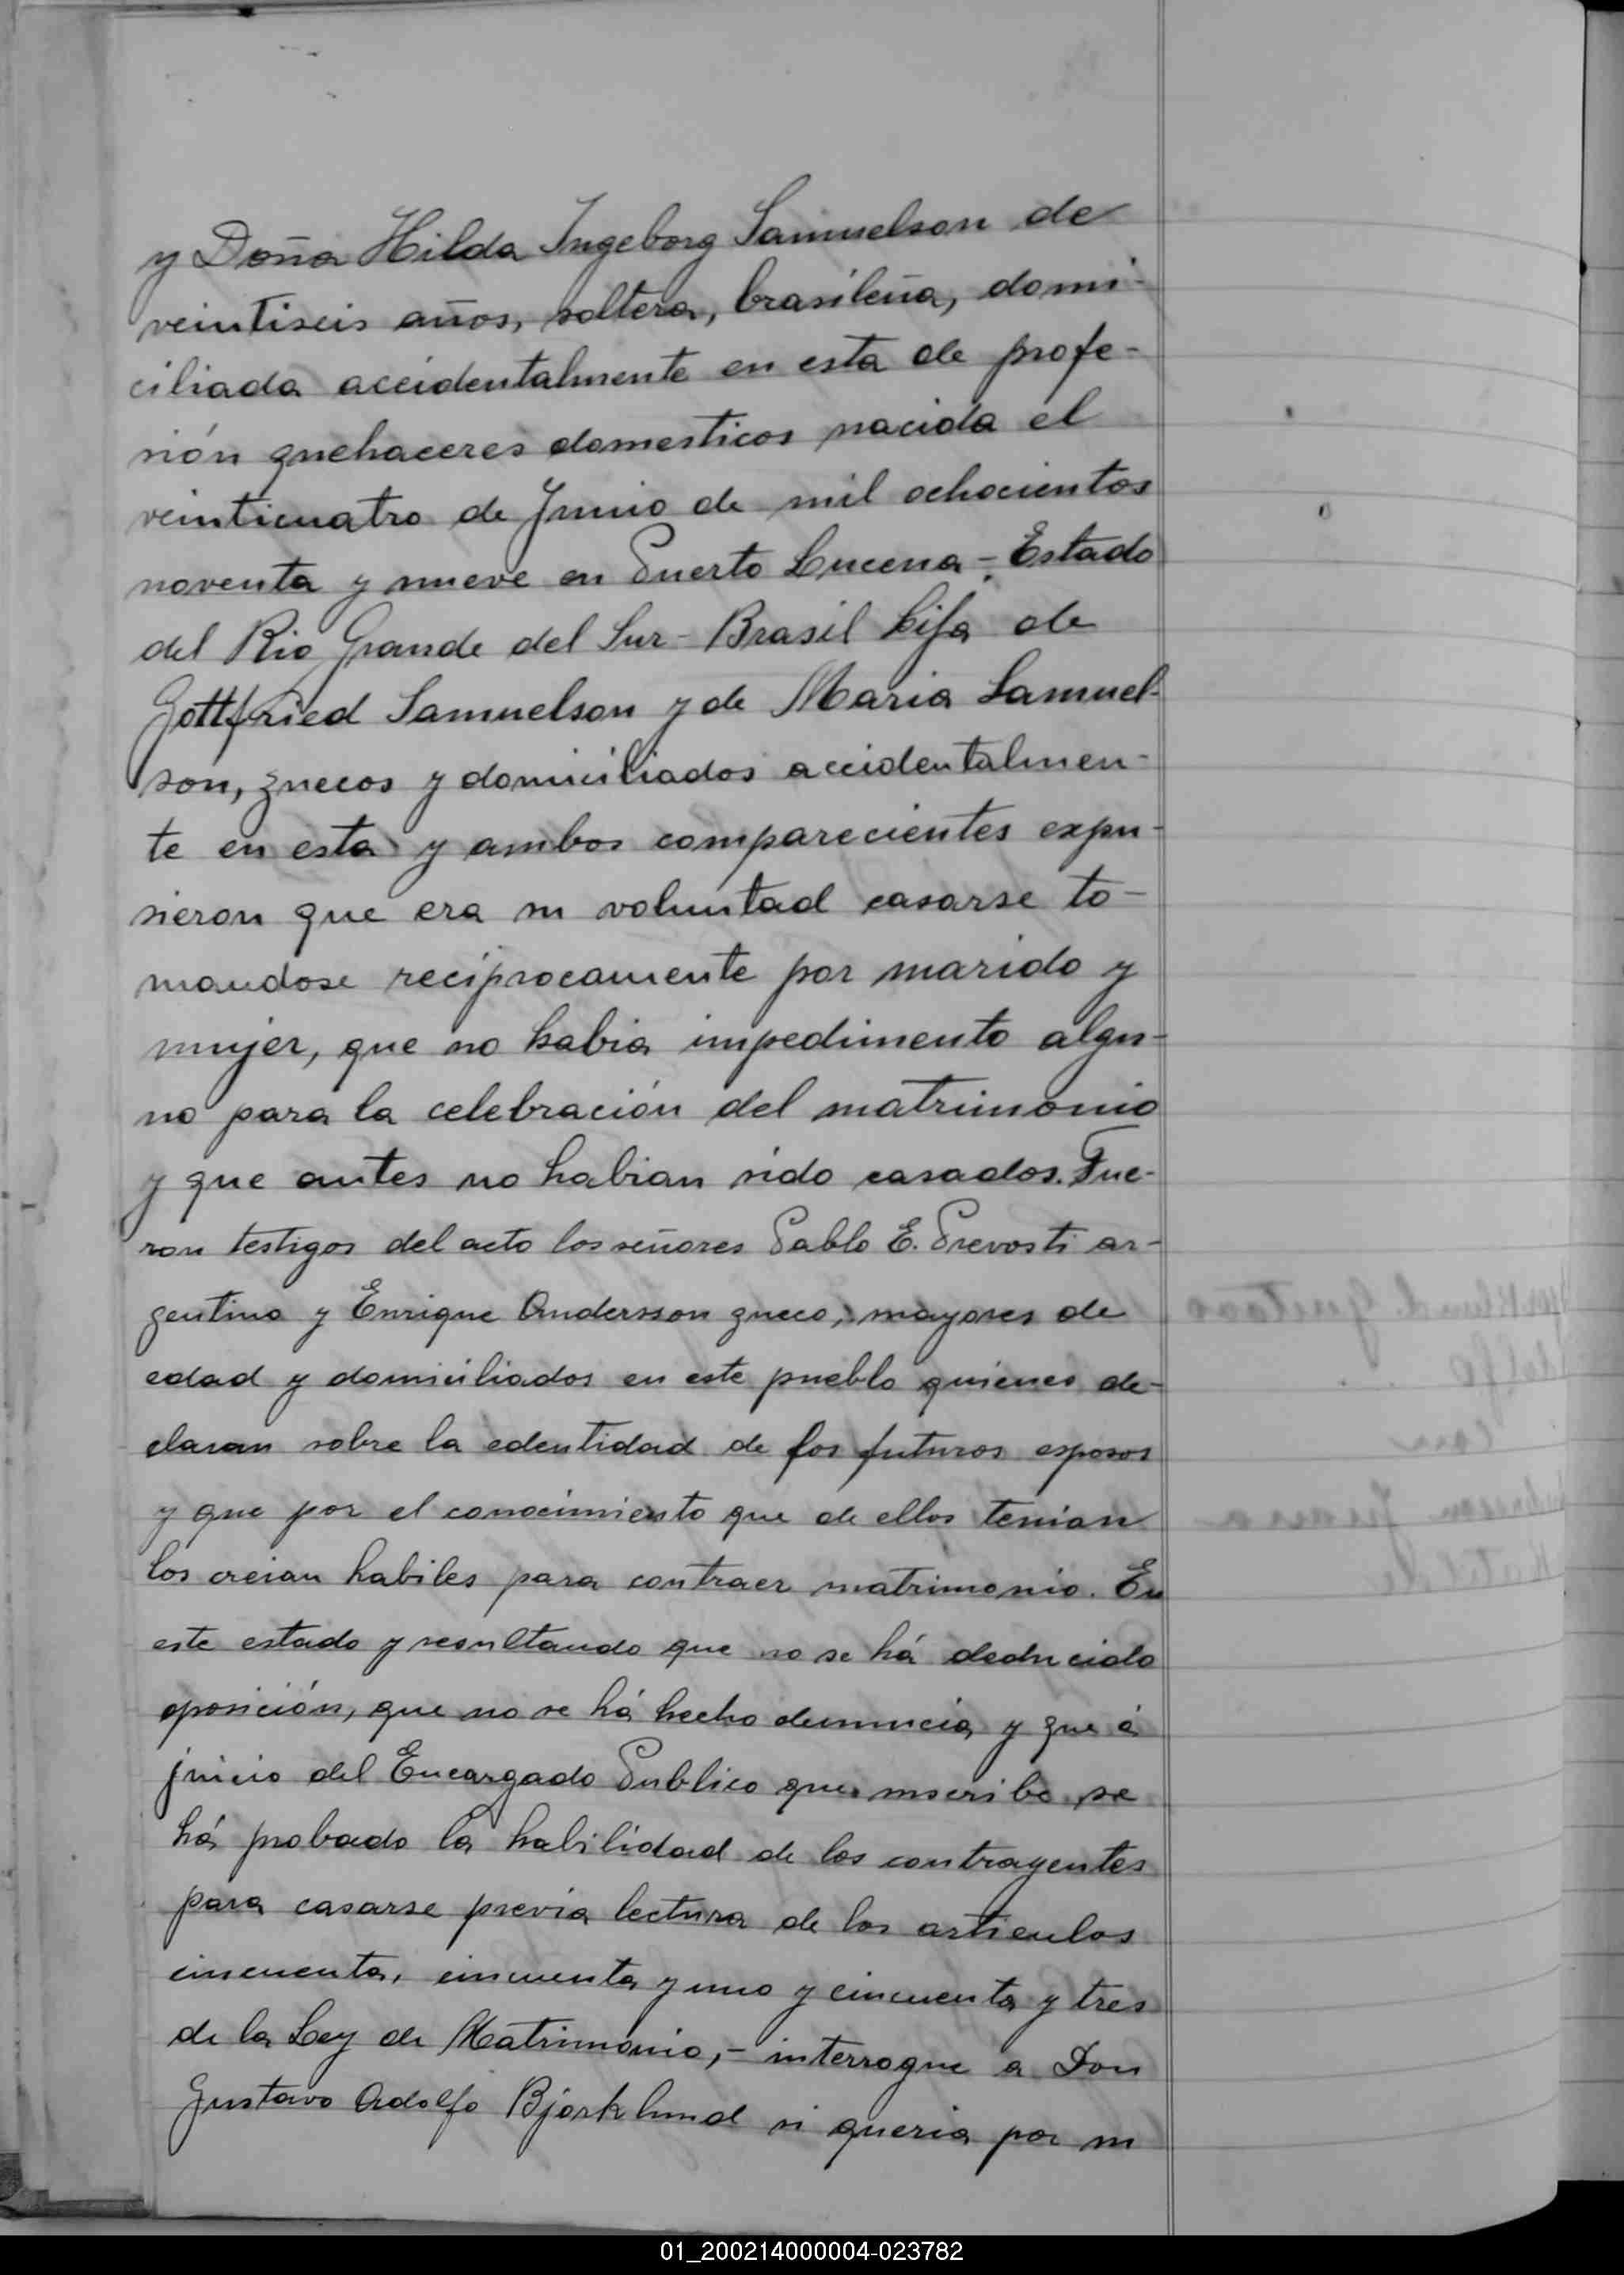 y Doña Hilda Ingeborg Samuelson de
veintiseis años, soltera, brasileña, domi-
ciliada accidentalmente en esta de profe-
sión quehaceres domesticos nacida el
veinticuatro de Junio de mil ochocientos
noventa y nueve en Puerto Lucena - Estado
del Rio Grande del Sur - Brasil hija de
Gottfried Samuelson y de Maria Samuel-
son, zuecos y domiciliados accidentalmen-
te en esta y ambos comparecientes expu-
sieron que era su voluntad casarse to-
mandose reciprocamente por marido y
mujer, que no habia impedimento algu-
no para la celebración del matrimonio
y que antes no habian sido casados. Fue-
ron testigos del acto los señores Pablo E. Prevosti ar-
gentino y Enrique Andersson zueco, mayores de
edad y domiciliados en este pueblo quienes de-
claran sobre la edentidad de los futuros esposos
y que por el conocimiento que de ellos tenian
los creian habiles para contraer matrimonio. En
este estado y resultando que no se há deducido
oposición, que no se há hecho denuncia y que á
juicio del Encargado Publico que inscribe se
há probado la habilidad de los contrayentes
para casarse previa lectura de los articulos
cincuenta, cincuenta y uno y cincuenta y tres
de la Ley de Matrimonio, - interrogue a Don
Gustavo Adolfo Bjorklund si queria por su
01_200214000004-023782